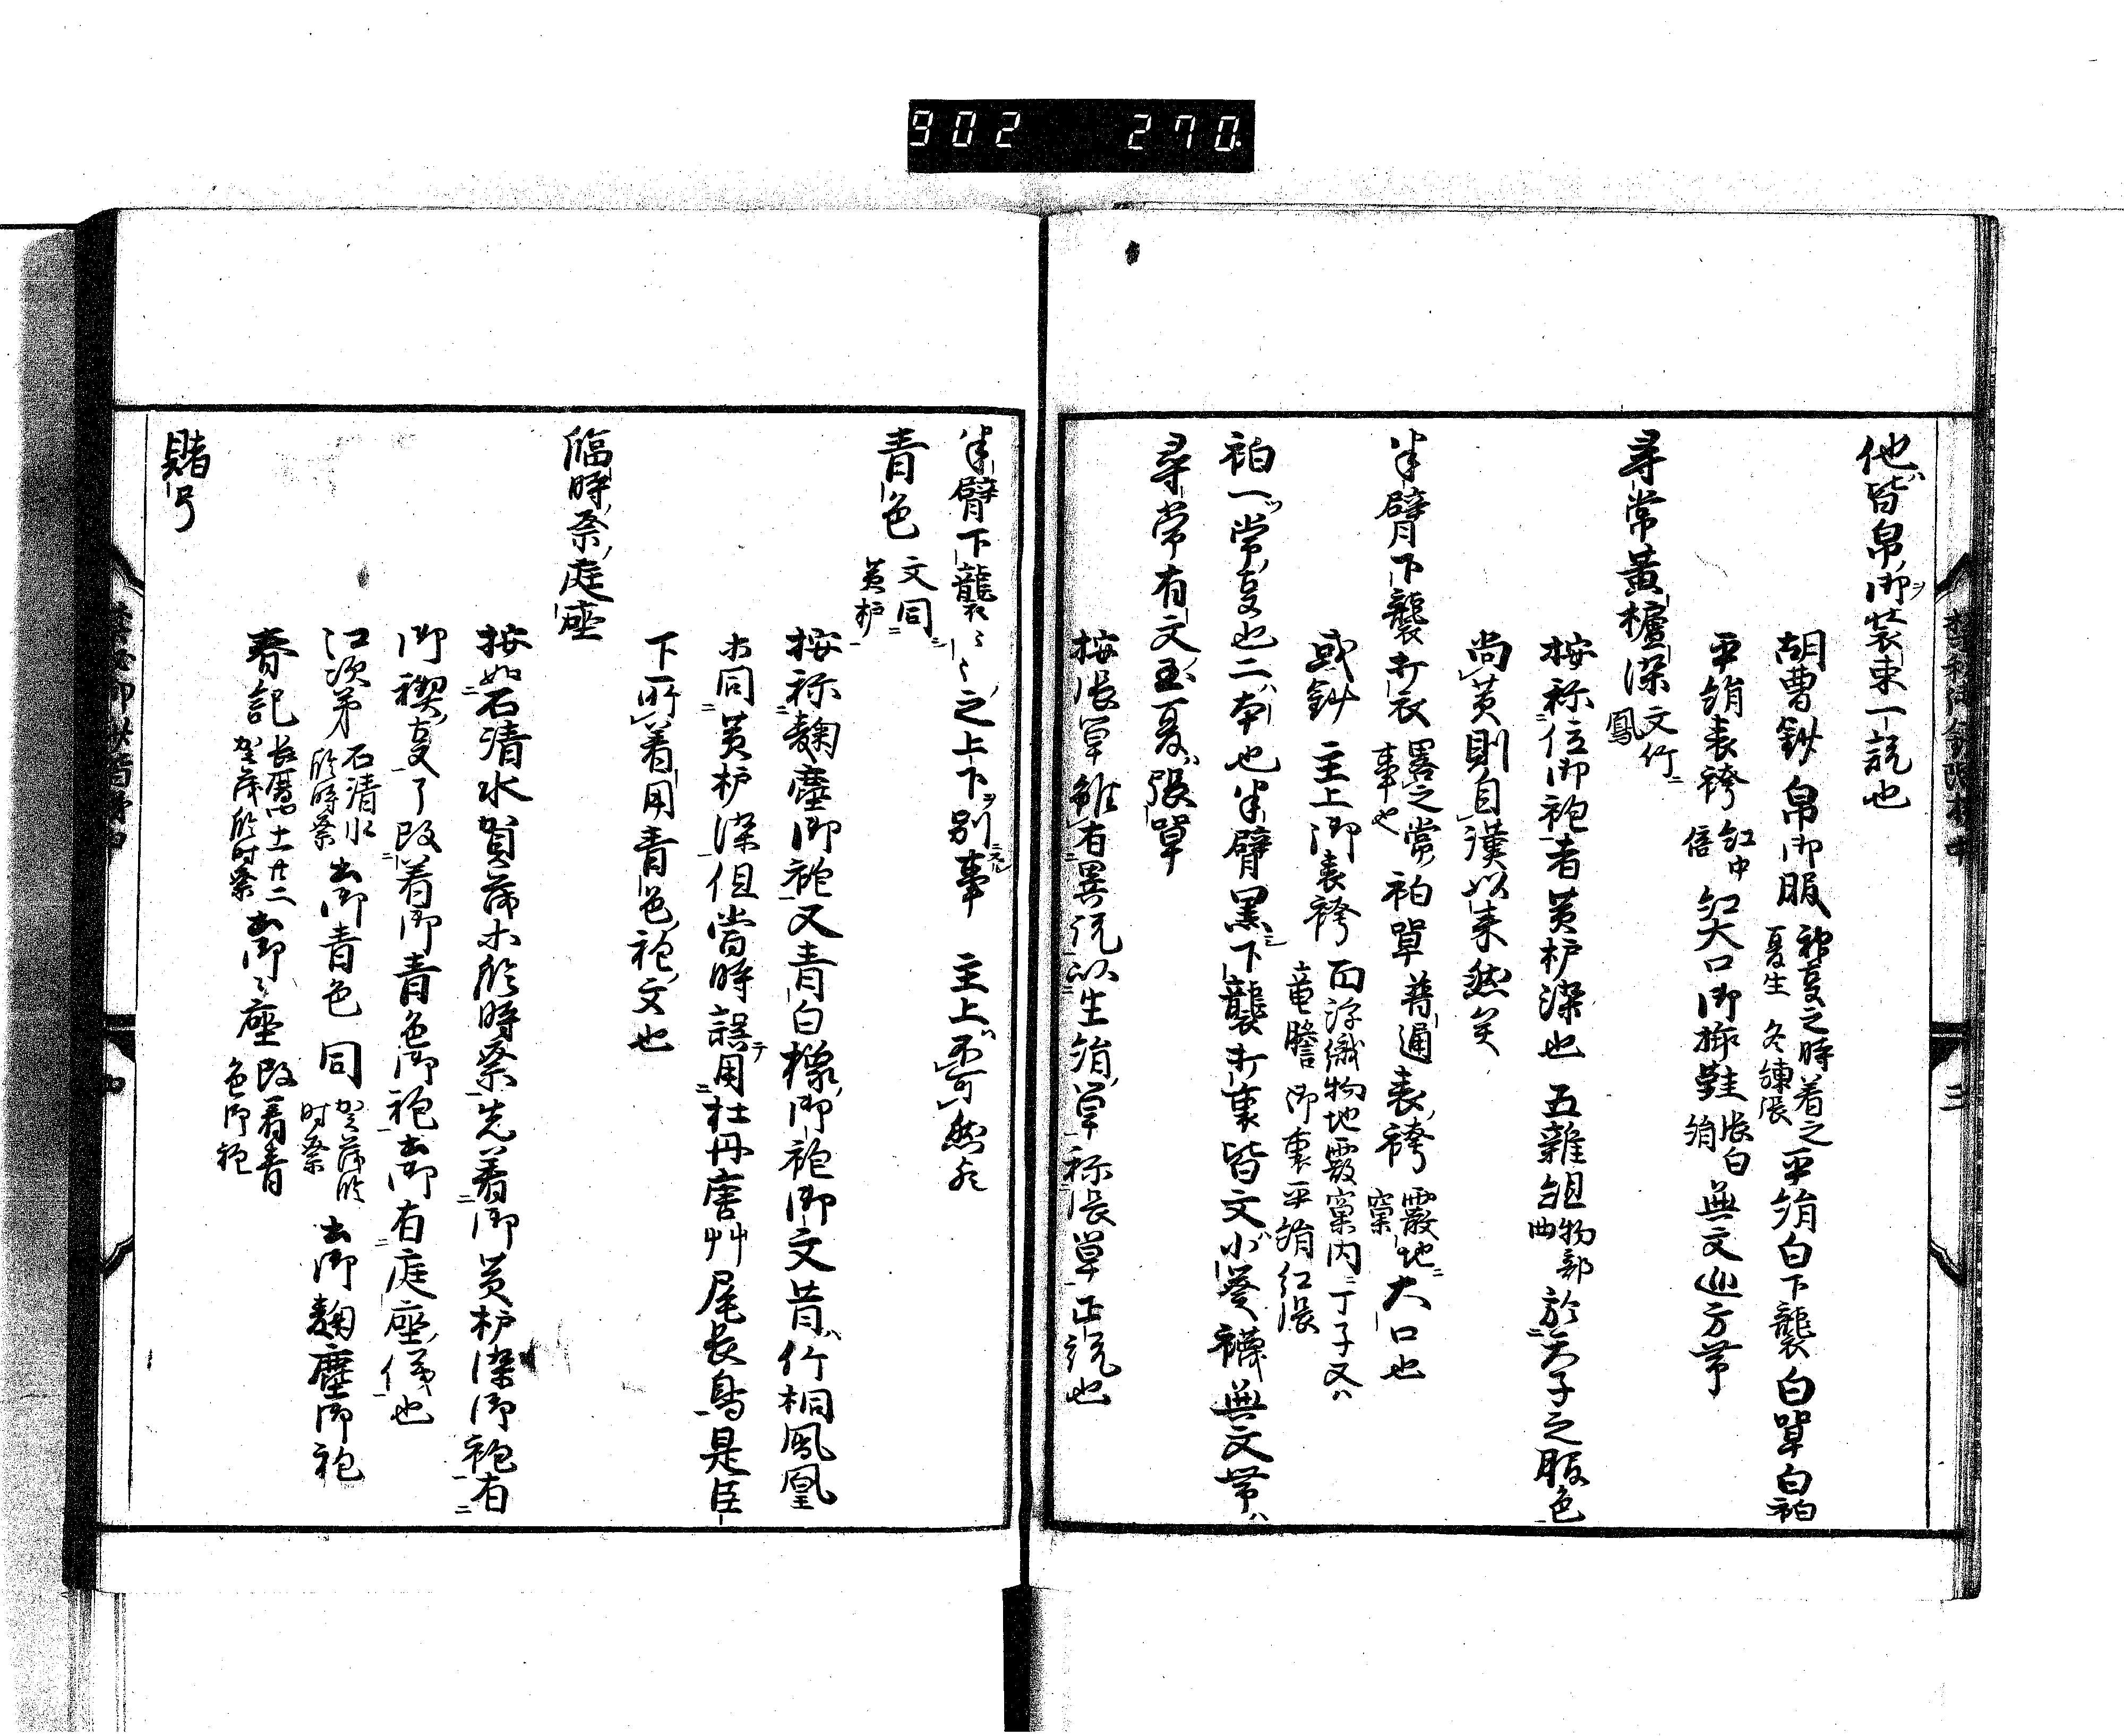 902 270
他皆帛御装束一説也
胡曹鈔 帛御服 神事之時着之 夏生 冬練張 平絹白下襲白単白袙
平絹表袴 紅中倍 紅大口御挿鞋 張白絹 無文巡方帯
尋常黄櫨染 文竹鳳
按称位御袍者黄栌染也 五雑俎 物部 曲 於天子之服色
尚黄則自漢以来然矣
半臂下襲打衣 畧之常事也 袙単 普通表袴 霰地窠 大口也
或鈔 主上御表袴 面浮織物地霰窠内ニ丁子又ハ 竜膽 御裏平絹紅張
袙一ツ常事也二ハ本也半臂黒下襲打裏皆文小葵襪無文帯ハ
尋常有文玉夏ハ張単
按張単雖有異説以生絹単称張単正説也
半臂下襲ミ之上下ヲ別事 主上不可然歟
青色 文同黄栌
按称麹塵御袍又青白橡御袍御文昔ハ竹桐鳳凰
ホ同黄栌染但當時誤テ用牡丹唐艸尾長鳥是臣
下所着用青色袍文也
臨時祭庭座
按如石清水賀茂ホ臨時祭先着御黄栌染御袍有
御禊事了改着御青色御袍出御有庭座儀也
江次第 石清水臨時祭 出御青色 同 賀茂臨時祭 出御麹塵御袍
春記 長暦 十一廿二 賀茂臨時祭 出御ミ座 改着青色御袍
賭弓
三
四